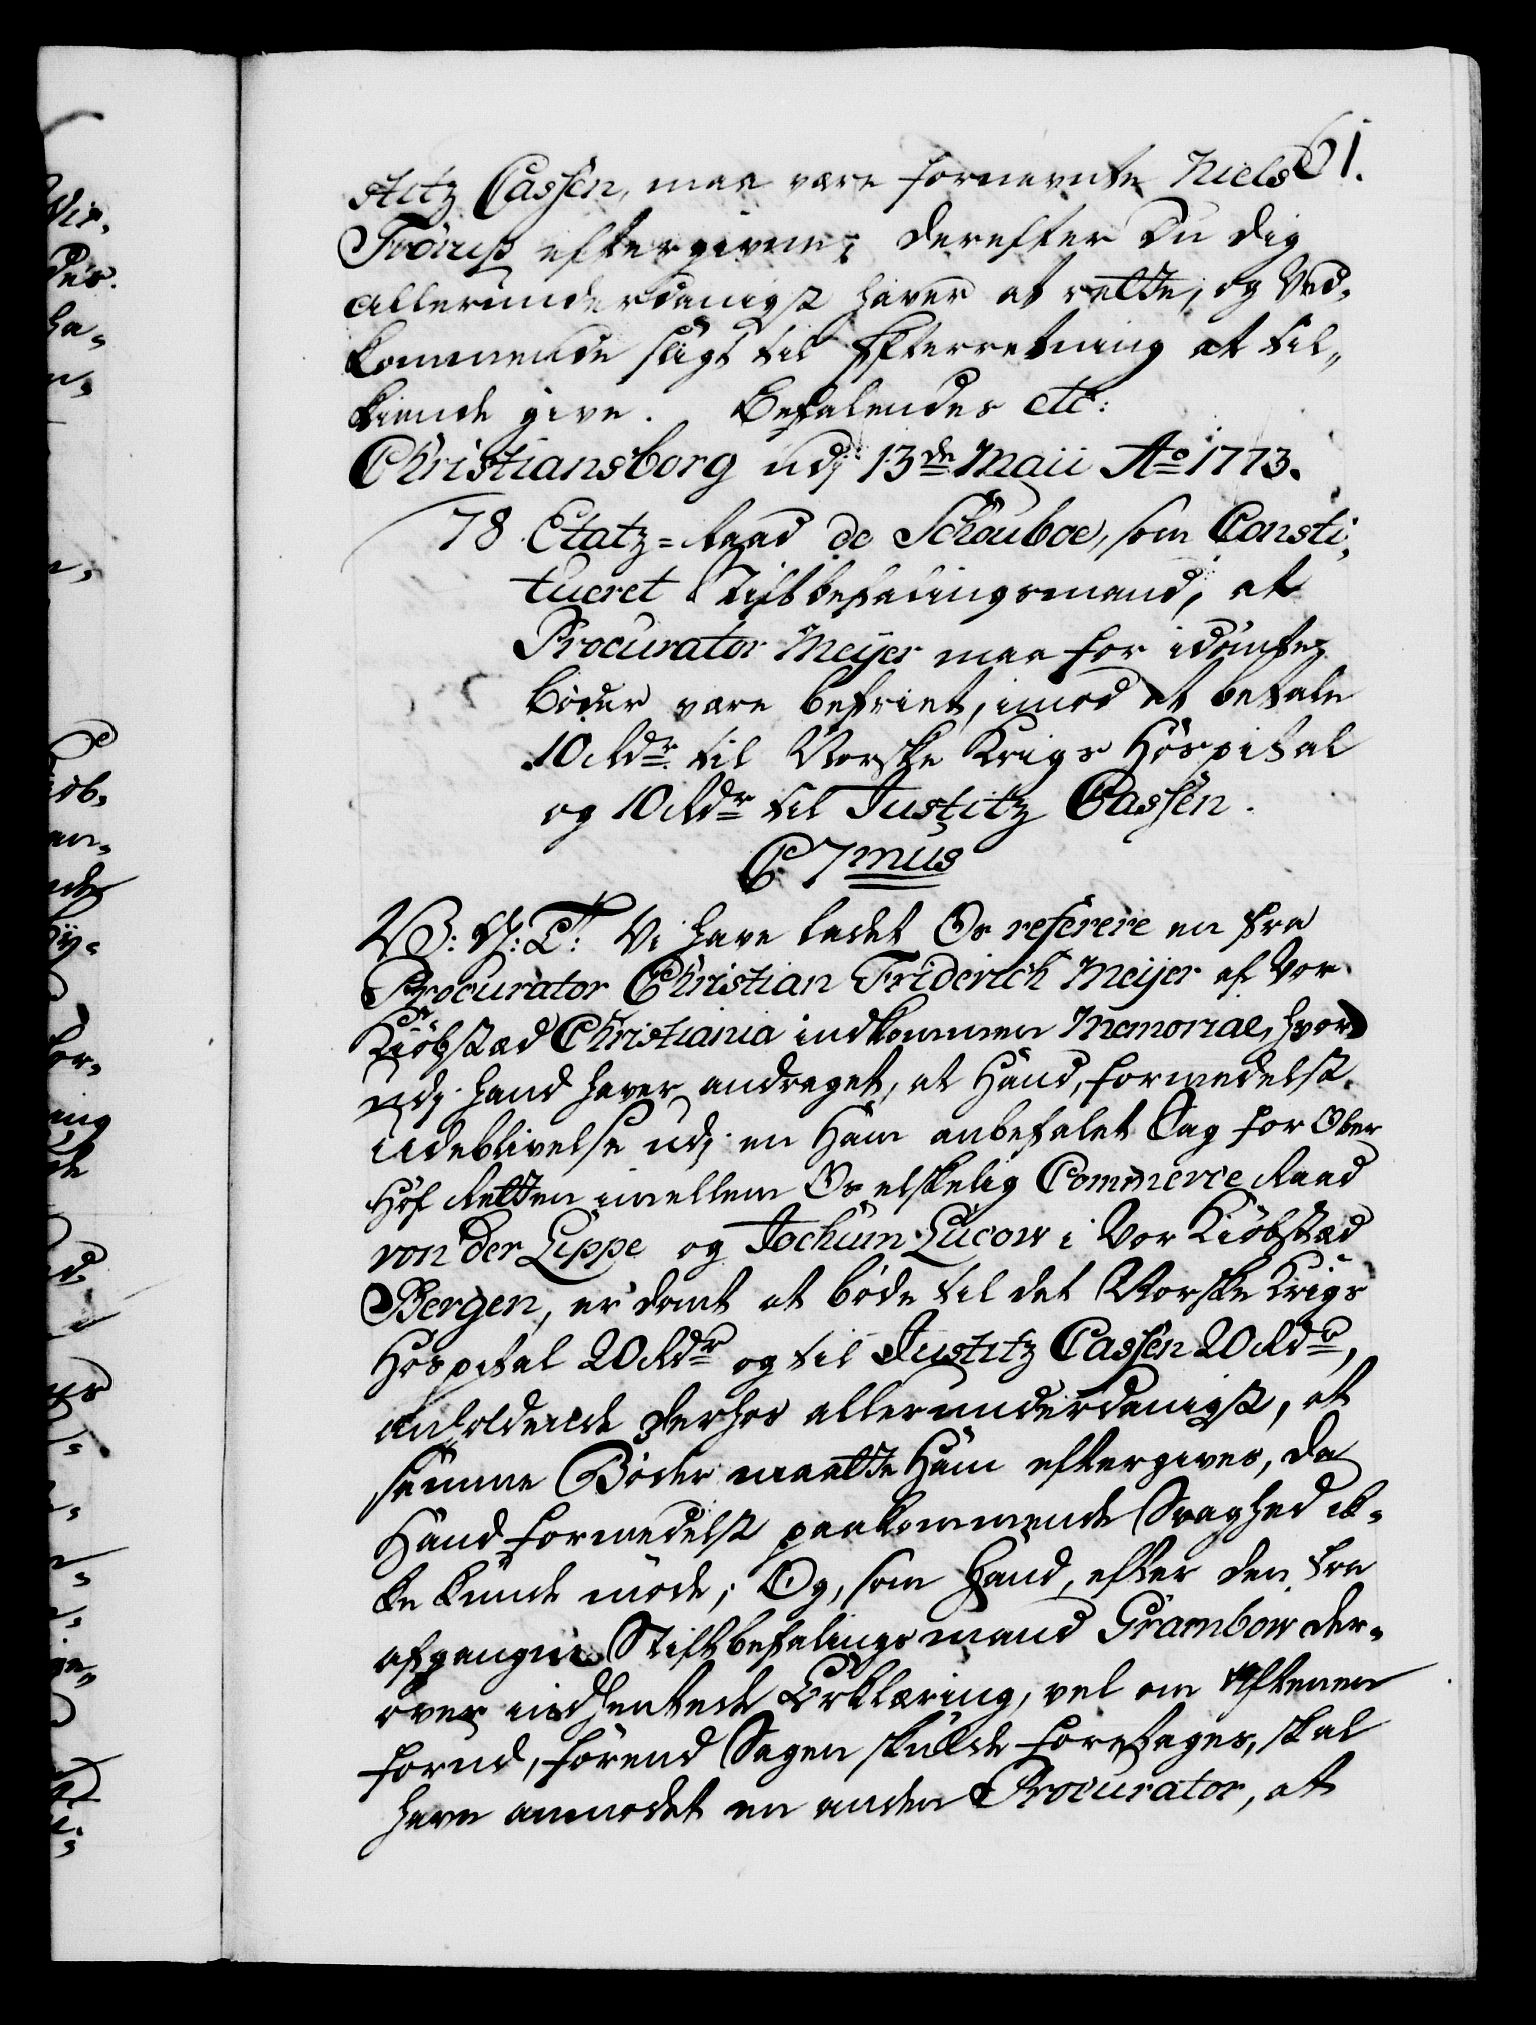 61.
stitz Cassen, maa være fornævnte Niels
Trörup eftergivne; derefter Du dig
allerunderdanigst haver at rette, og Ved-
kommende sligt til Efterretning at til-
kiende give. Befalendes etc:
Christiansborg udj 13de Maii Ao 1773.
78 Etatz-Raad de Schouboe, som Consti-
tueret Stiftbefalingsmand, at
Procurator Meijer maa for idömte
Böder være befriet, imod at betale
10 Rdr til Norske Krigs Hospital
og 10 Rdr til Justitz Cassen.
C 7mus
V: G: T: Vi have ladet Os referere en fra
Procurator Christian Friderich Meijer af Vor
Kiöbstæd Christiania indkommen Memorial, hvor
udj hand haver andraget, at Hand, formedelst
Udeblivelse udj en Ham anbefalet Sag for Ober
Hof Retten imellem Os elskelig Commerce Raad
von der Lippe og Jochum Lucow i Vor Kiöbstæd
Bergen, er dömt at böde til det Norske Krigs
Hospital 20 Rdr og til Justitz Cassen 20 Rdr,
anholdende derhos allerunderdanigst, at
samme Böder maatte Ham eftergives, da
Hand formedelst paakommende Svaghed ik-
ke kunde möde; Og, som Hand, efter den fra
afgangne Stiftbefalingsmand Grambow der-
over indhentede Erklæring, vel om Aftenen
forud, förend Sagen skulde foretages, skal
have anmodet en anden Procurator, at